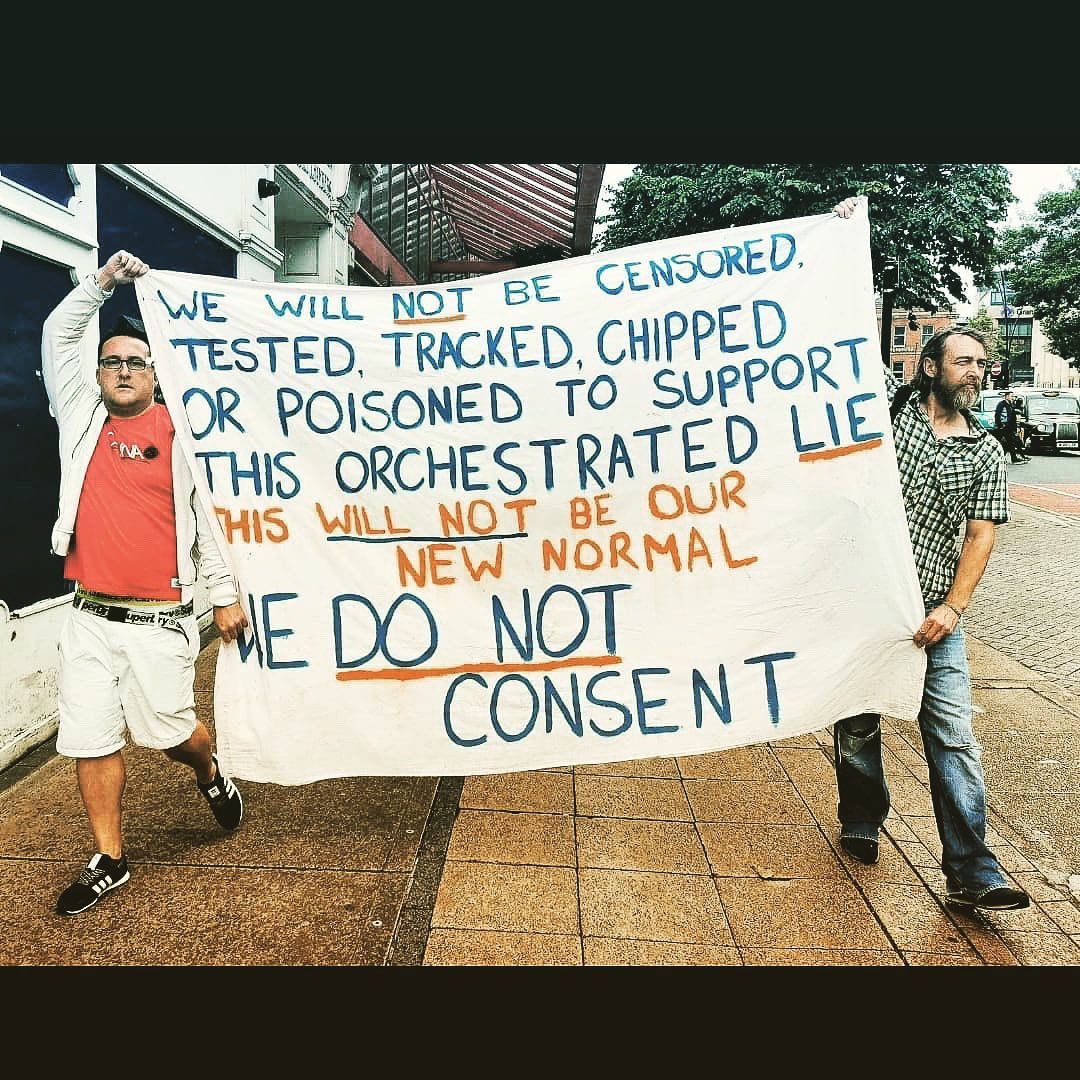 WE WILL NOT BE CENSORED,
TESTED, TRACKED, CHIPPED
OR POISONED TO SUPPORT
THIS ORCHESTRATED LIE
THIS WILL NOT BE OUR
NEW NORMAL
WE DO NOT
CONSENT